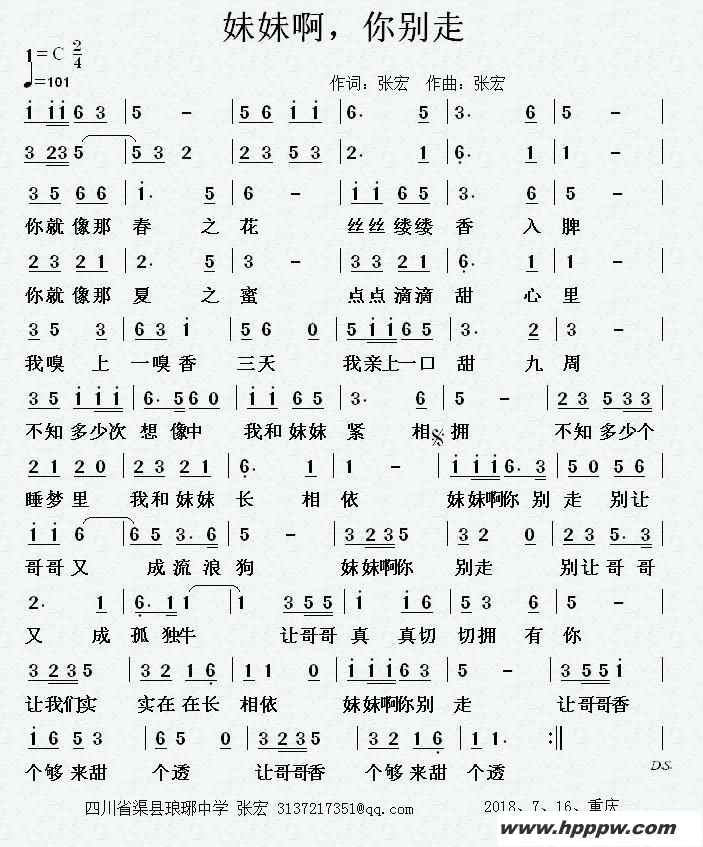 妹妹啊，你别走
1=C 2/4
♩=101
作词：张宏 作曲：张宏
i ii 6 3 | 5 - | 5 6 i i | 6· 5 | 3· 6 | 5 - |
3 23 5 | 5 3 2 | 2 3 5 3 | 2· 1 | 6· 1 | 1 - |
3 5 6 6 | i· 5 | 6 - | i i 6 5 | 3· 6 | 5 - |
你就像那 春 之 花 丝丝缕缕 香 入 脾
2 3 2 1 | 2· 5 | 3 - | 3 3 2 1 | 6· 1 | 1 - |
你就像那 夏 之 蜜 点点滴滴 甜 心 里
3 5 3 | 6 3 i | 5 6 0 | 5 i i 6 5 | 3· 2 | 3 - |
我嗅 上 一嗅香 三天 我亲上一口 甜 九 周
3 5 i i i | 6· 5 6 0 | i i 6 5 | 3· 6 | 5 - | 2 3 5 3 3 |
不知多少次 想 像中 我和妹妹 紧 相 拥 不知多少个
2 1 2 0 | 2 3 2 1 | 6· 1 | 1 - | i i i 6· 3 | 5 0 5 6 |
睡梦里 我和妹妹 长 相 依 妹妹啊你 别 走 别让
i i 6 | 6 5 3· 6 | 5 - | 3 2 3 5 | 3 2 0 | 2 3 5· 3 |
哥哥又 成流浪 狗 妹妹啊你 别走 别让哥哥
2· 1 | 6· 1 1 | 1 3 5 5 | i i 6 | 5 3 6 | 5 - |
又 成 孤 独牛 让哥哥 真 真切 切拥 有 你
3 2 3 5 | 3 2 1 6 | 1 1 0 | i i i 6 3 | 5 - | 3 5 5 i |
让我们实 实在在长 相依 妹妹啊你别 走 让哥哥香
i 6 5 3 | 6 5 0 | 3 2 3 5 | 3 2 1 6 | 1 1· :‖
D.S.
个够来甜 个透 让哥哥香 个够来甜 个透
四川省渠县琅琊中学 张宏 3137217351@qq.com 2018、7、16、重庆
www.hpppw.com